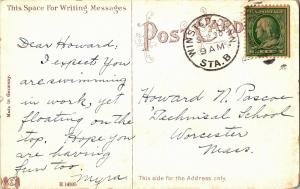 This Space For Writing Messages
Post Card
WINSTED
8 AM
STA. B
Dear Howard,
I expect you
are swimming
in work, yet
floating on the
top. Hope you
are having
fun too.
Myra
Howard N. Pascoe
Technical School
Worcester
Mass.
Made in Germany.
H 14805
This side for the Address only.